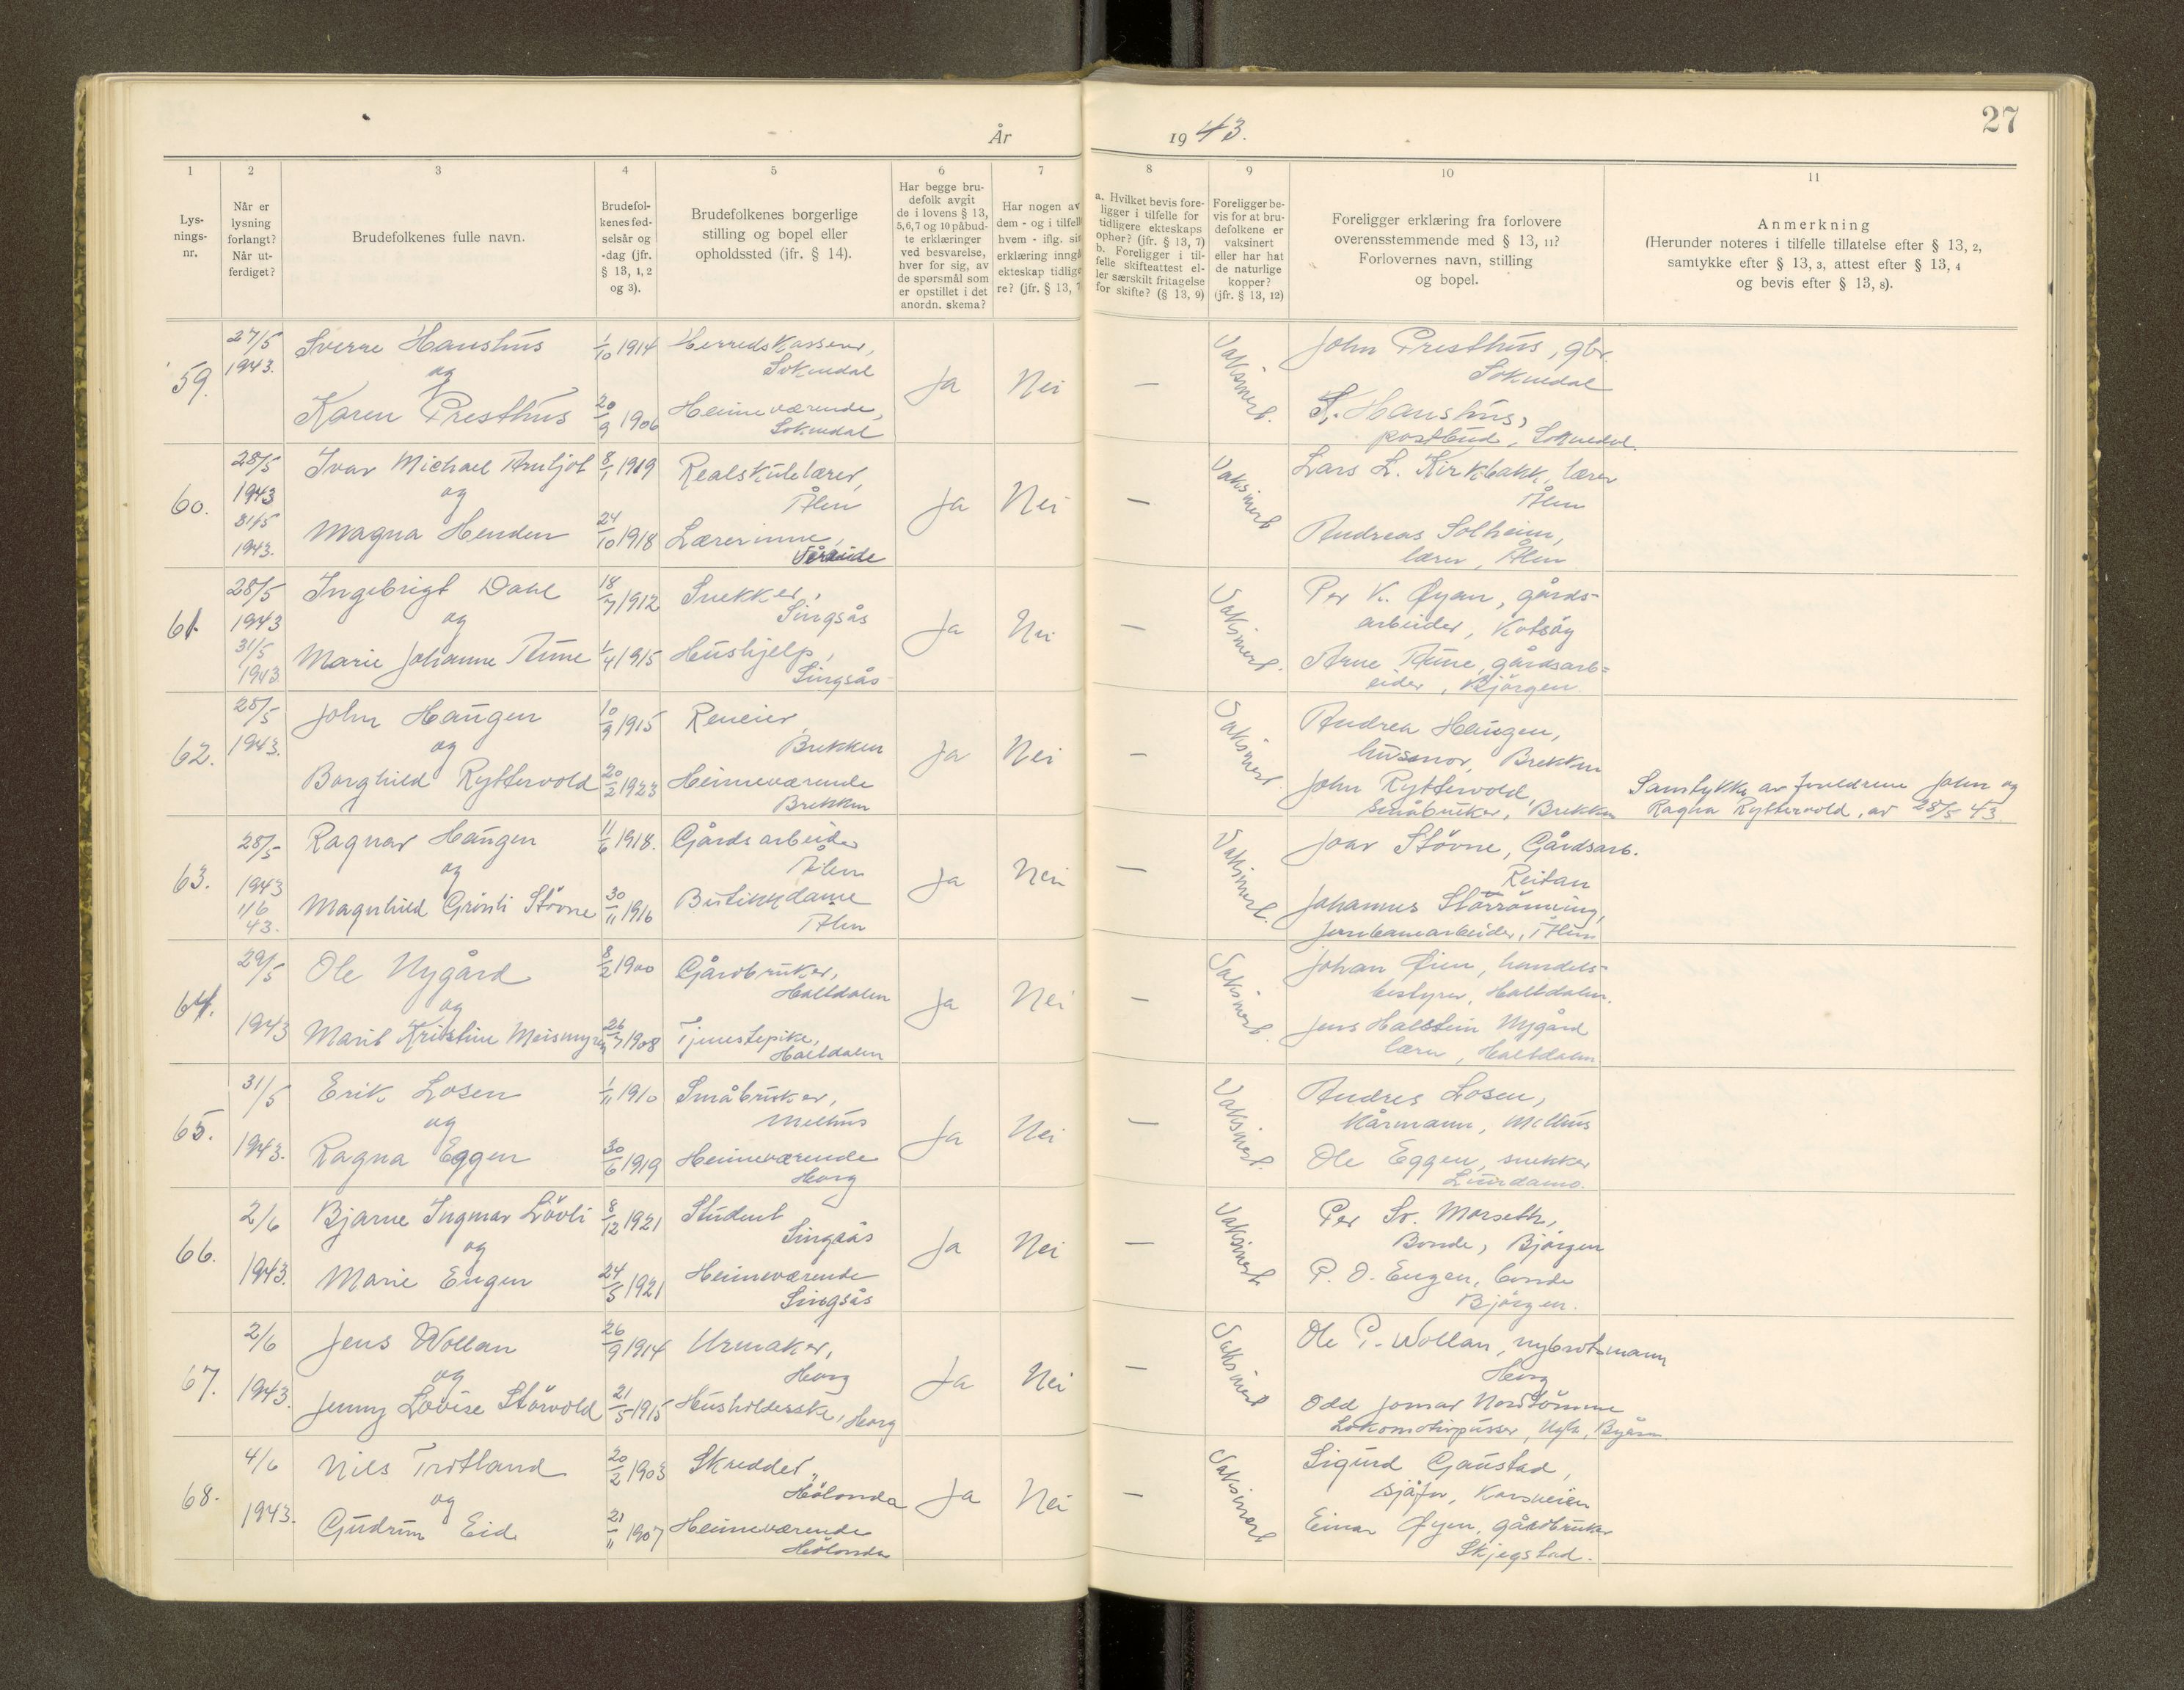 År 1943.
27
1
2
3
4
5
6
7
8
9
10
11
Lys-
nings-
nr.
Når er
lysning
forlangt?
Når ut-
ferdiget?
Brudefolkenes fulle navn.
Brudefol-
kenes fød-
selsår og
-dag (jfr.
§ 13, 1, 2
og 3).
Brudefolkenes borgerlige
stilling og bopel eller
opholdssted (jfr. § 14).
Har begge bru-
defolk avgit
de i lovens § 13,
5,6,7 og 10 påbud-
te erklæringer
ved besvarelse,
hver for sig, av
de spørsmål som
er opstillet i det
anordn. skema?
Har nogen av
dem - og i tilfelle
hvem - iflg. sin
erklæring inngå
ekteskap tidlige-
re? (jfr. § 13, 7
a. Hvilket bevis fore-
ligger i tilfelle for
tidligere ekteskaps
ophør? (jfr. § 13, 7)
b. Foreligger i til-
felle skifteattest el-
ler særskilt fritagelse
for skifte? (§ 13, 9)
Foreligger be-
vis for at bru-
defolkene er
vaksinert
eller har hat
de naturlige
kopper?
(jfr. § 13, 12)
Foreligger erklæring fra forlovere
overensstemmende med § 13, 11?
Forlovernes navn, stilling
og bopel.
Anmerkning
(Herunder noteres i tilfelle tillatelse efter § 13, 2,
samtykke efter § 13, 3, attest efter § 13, 4
og bevis efter § 13, 8).
59.
27/5
1943.
Sverre Haushus
og
Karen Presthus
1/10 1914
20/9 1906
Herredskasserer,
Soknedal
Heimeværende,
Soknedal
Ja
Nei
—
Vaksinert.
John Presthus, gbr.
Soknedal
S. Haushus,
postbud, Soknedal.
60.
28/5
1943
31/5
1943.
Ivar Michael Arntjot
og
Magna Henden
8/1 1919
24/10 1918
Realskulelærer,
Ålen
Lærerinne,
Ja
Nei
—
Vaksinert
Lars L. Kirkbakk, lærer
Ålen
Andreas Solheim,
lærer, Ålen
61.
28/5
1943
31/5
1943
Ingebrigt Dahl
og
Marie Johanne Aune
18/7 1912
1/4 1915
Snekker,
Singsås
Hushjelp,
Singsås
Ja
Nei
—
Vaksinert.
Per K. Øyan, gårds-
arbeider, Kotsøy
Arne Aune, gårdsarb=
eider, Bjørgen
62.
28/5
1943.
John Haugen
og
Borghild Ryttervold
10/9 1915
20/2 1923
Reneier
Brekken
Heimeværende
Brekken
Ja
Nei
—
Vaksinert
Andrea Haugen,
husmor, Brekken
John Ryttervold
småbruker, Brekken
Samtykke av foreldrene John og
Ragna Ryttervold, av 28/5 43.
63.
28/5
1943
1/6
43.
Ragnar Haugen
og
Magnhild Grinli Støvne
11/6 1918.
30/11 1916
Gårdsarbeider
Ålen
Butikkdame
Ålen
Ja
Nei
—
Vaksinert.
Joar Støvne, Gårdsarb.
Reitan
Johannes Storrønning,
Jernbanearbeider, Ålen
64.
29/5
1943
Ole Nygård
og
Marit Kristine Meismyren
8/2 1900
26/7 1908
Gårdbruker,
Haltdalen
Tjenestepike,
Haltdalen
Ja
Nei
—
Vaksinert.
Johan Øien, handels-
bestyrer, Haltdalen.
Jens Halstein Nygård
lærer, Haltdalen
65.
31/5
1943.
Erik Losen
og
Ragna Eggen
1/11 1910
30/6 1919
Småbruker,
Melhus
Heimeværende
Horg
Ja
Nei
—
Vaksinert.
Andres Losen,
Kårmann, Melhus
Ole Eggen, snekker
Lundamo.
66.
2/6
1943.
Bjarne Ingmar Løvli
og
Marie Engen
8/12 1921
24/5 1921
Student
Singsås
Heimeværende
Singsås
Ja
Nei
—
Vaksinert
Per Sv. Morseth,
Bonde, Bjørgen
P. O. Engen, bonde
Bjørgen.
67.
2/6
1943.
Jens Wollan
og
Jenny Lovise Størvold
26/9 1914
21/5 1915
Urmaker,
Horg
Husholderske, Horg
Ja
Nei
—
Vaksinert
Ole P. Wollan, nybrotsmann
Horg
Odd Jomar Nordtømme
Lokomotivpusser, Ugla, Byåsen
68.
4/6
1943.
Nils Trotland
og
Gudrun Eid
20/2 1903
21/11 1907
Skredder,
Hølonda
Heimeværende
Hølonda
Ja
Nei
—
Vaksinert
Sigurd Gaustad,
sjåfør, Korsveien
Einar Øyen, gårdbruker
Skjegstad.